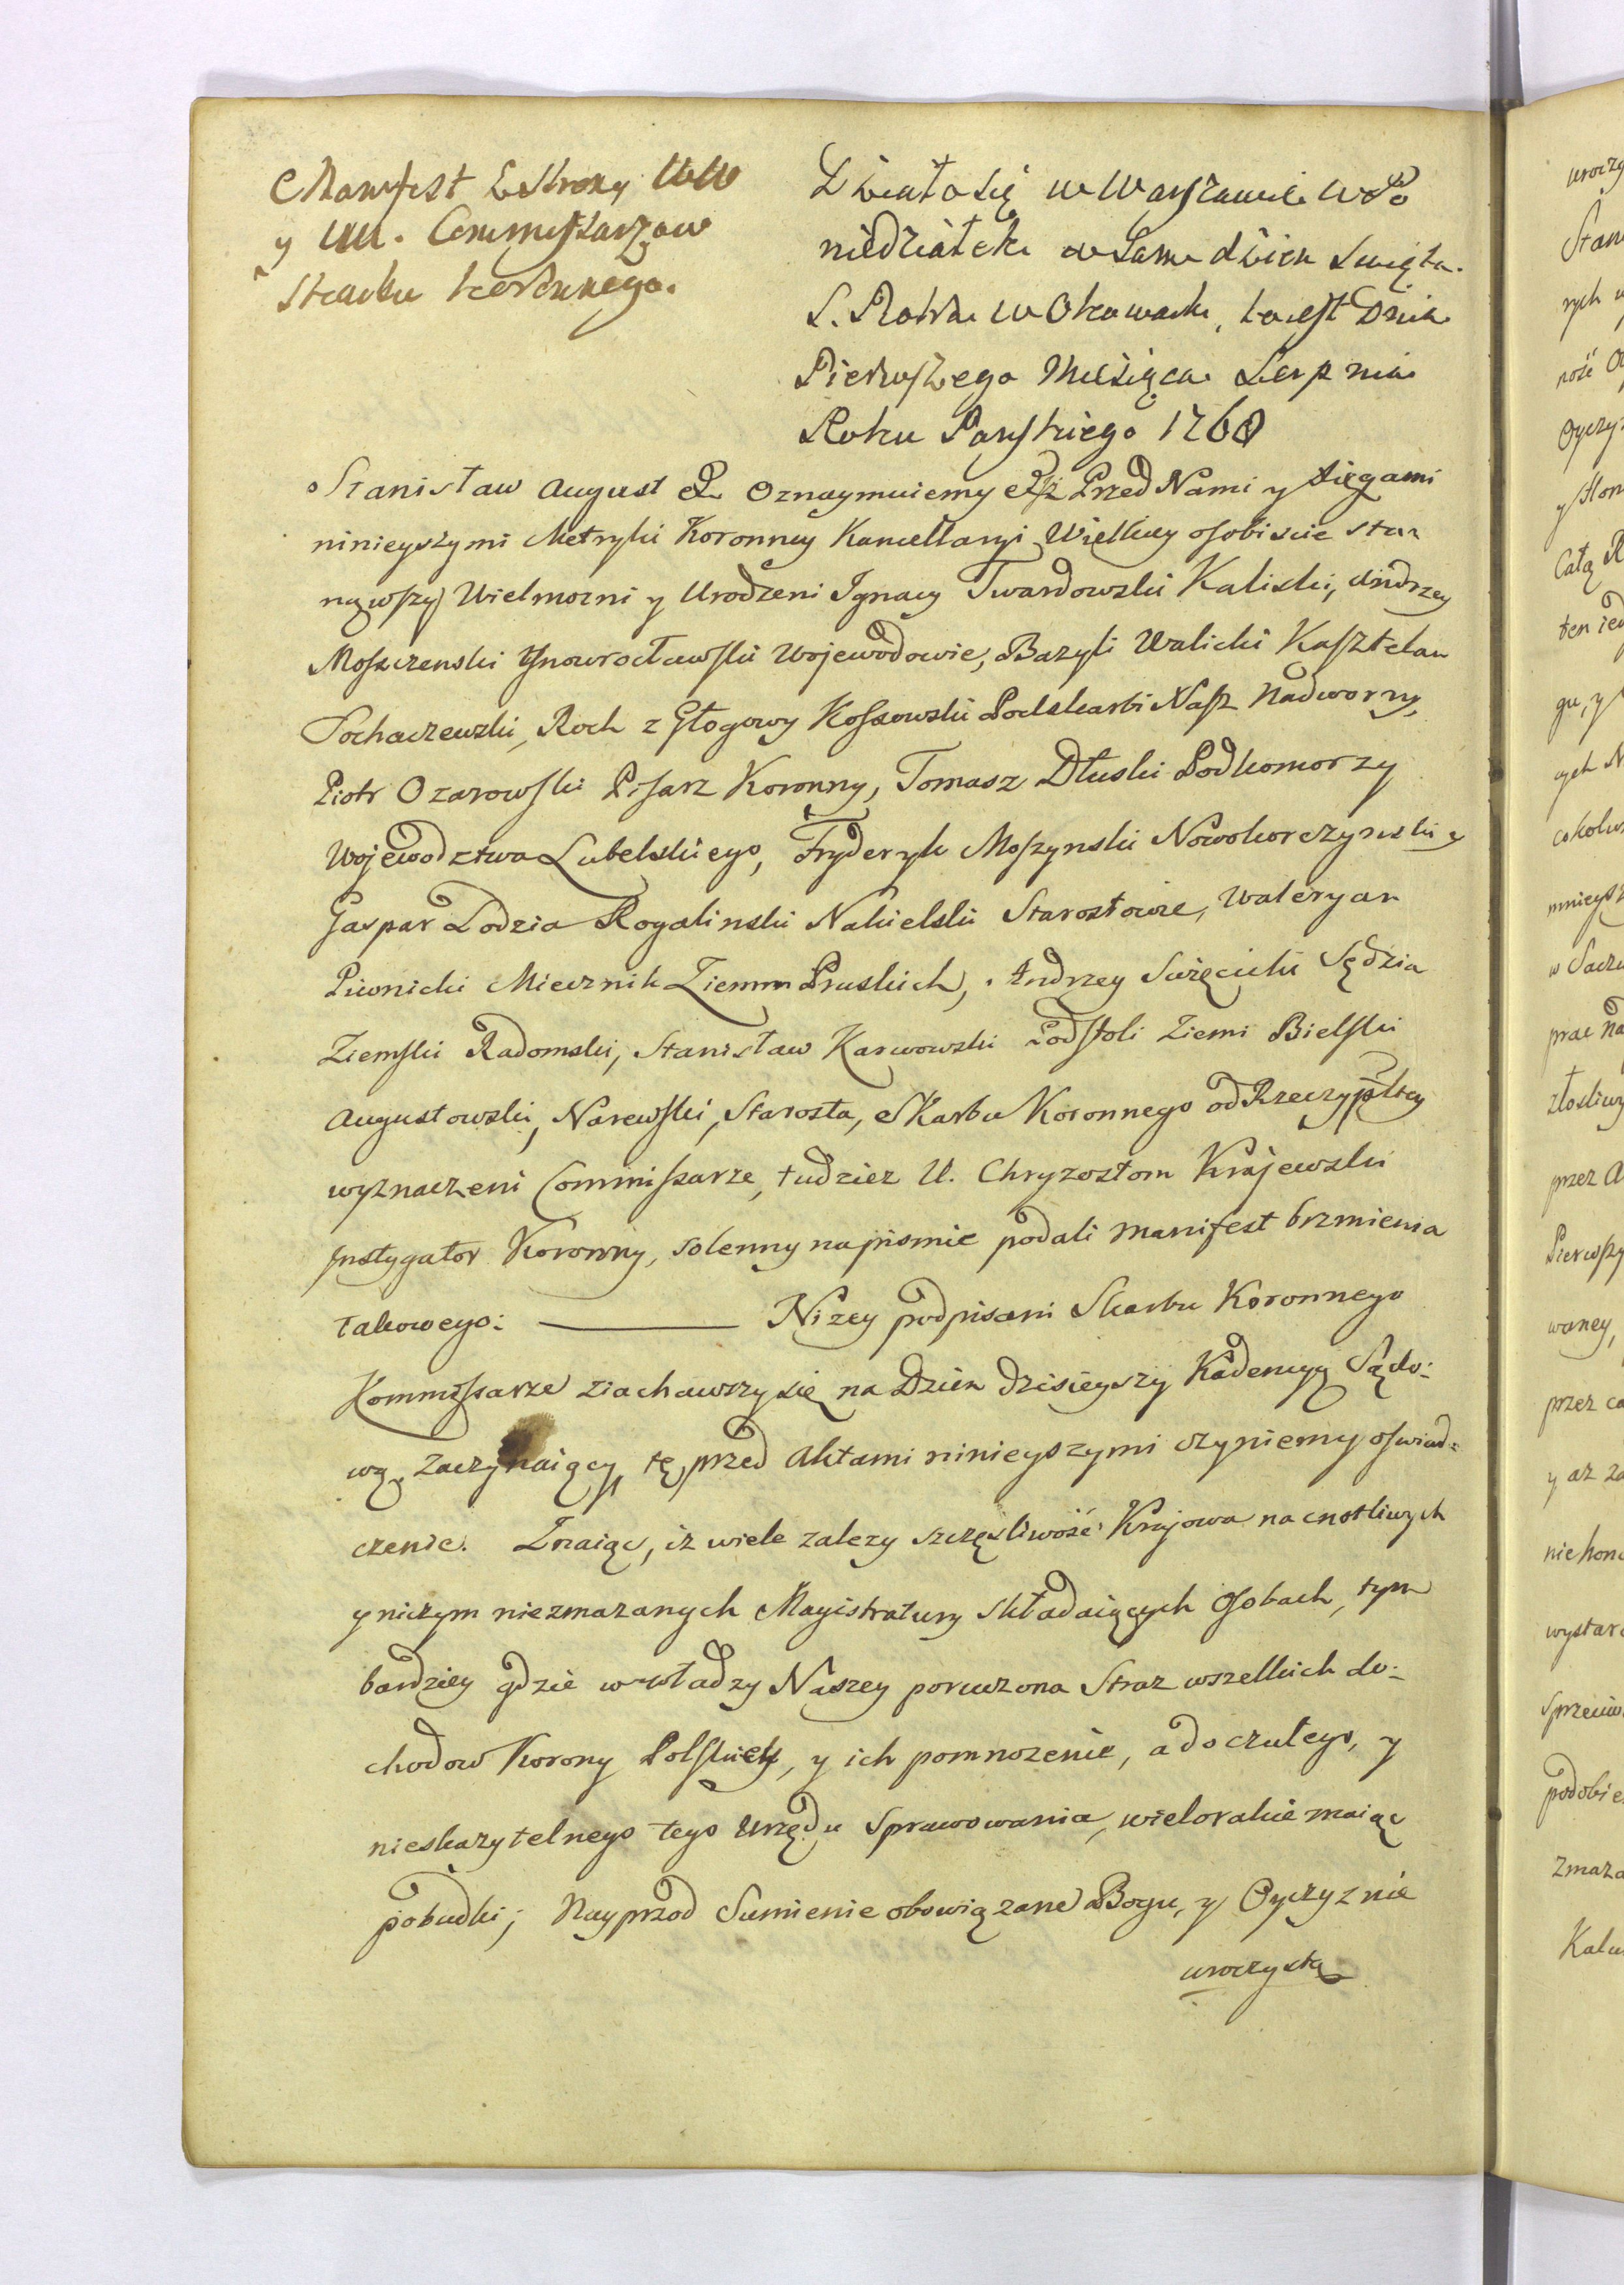 Manifest z Strony WW
y UU. Commissarzow
Skarbu Koronnego.
Działo się w Warszawie w Po
niedziałek w Sam dzien Swięta
S. Piotra w Okowach, to iest Dnia
Pierwszego Miesiąca Sierpnia
Roku Panskiego 1768
Stanisław August &. Oznaymuiemy & iż Przed Nami y Xięgami
ninieyszymi Metryki Koronney Kancellaryi Wielkiey osobiscie sta-
nąwszy Wielmozni y Urodzeni Ignacy Twardowski Kaliski, Andrzey
Moszczenski Ynowrocławski Wojewodowie, Bazyli Walicki Kasztelan
Sochaczewski, Roch z Głogowy Kossowski Podskarbi Nasz Nadworny,
Piotr Ozarowski Pisarz Koronny, Tomasz Dłuski Podkomorzy
Wojewodztwa Lubelskiego, Fryderyk Moszynski Nowokorczynski y
Gaspar Lodzia Rogalinski Nakielski Starostowie, Waleryan
Piwnicki Miecznik Ziemm Pruskich, Andrzey Swięcicki Sędzia
Ziemski Radomski, Stanisław Karwowski Podstoli Ziemi Bielski
Augustowski, Narewski, Starosta, Skarbu Koronnego od Rzeczypltey
wyznaczeni Commissarze, tudziez U. Chryzostom Krajewski
Instygator Koronny, solenny na pismie podali manifest brzmienia
takowego: ——— Nizey podpisani Skarbu Koronnego
Kommissarze ziachawszy się na Dzien dzisieyszy Kadencyą Sądo:
wą zaczynaiący, tę przed Aktami ninieyszymi czyniemy oswiad:
czenie. Znaiąc, iz wiele zalezy szczęsliwość Krajowa na cnotliwych
y niczym niezmazanych Magistratury składaiących Osobach, tym
bardziey gdzie w władzy Naszey poruczona Straz wszelkich do:
chodow Korony Polskiey, y ich pomnozenie, a do czułego, y
nieskazytelnego tego Urzędu Sprawowania, wielorakie maiąc
pobudki; Nayprzod Sumienie obowiązane Bogu, y Oyczyznie
uroczystą